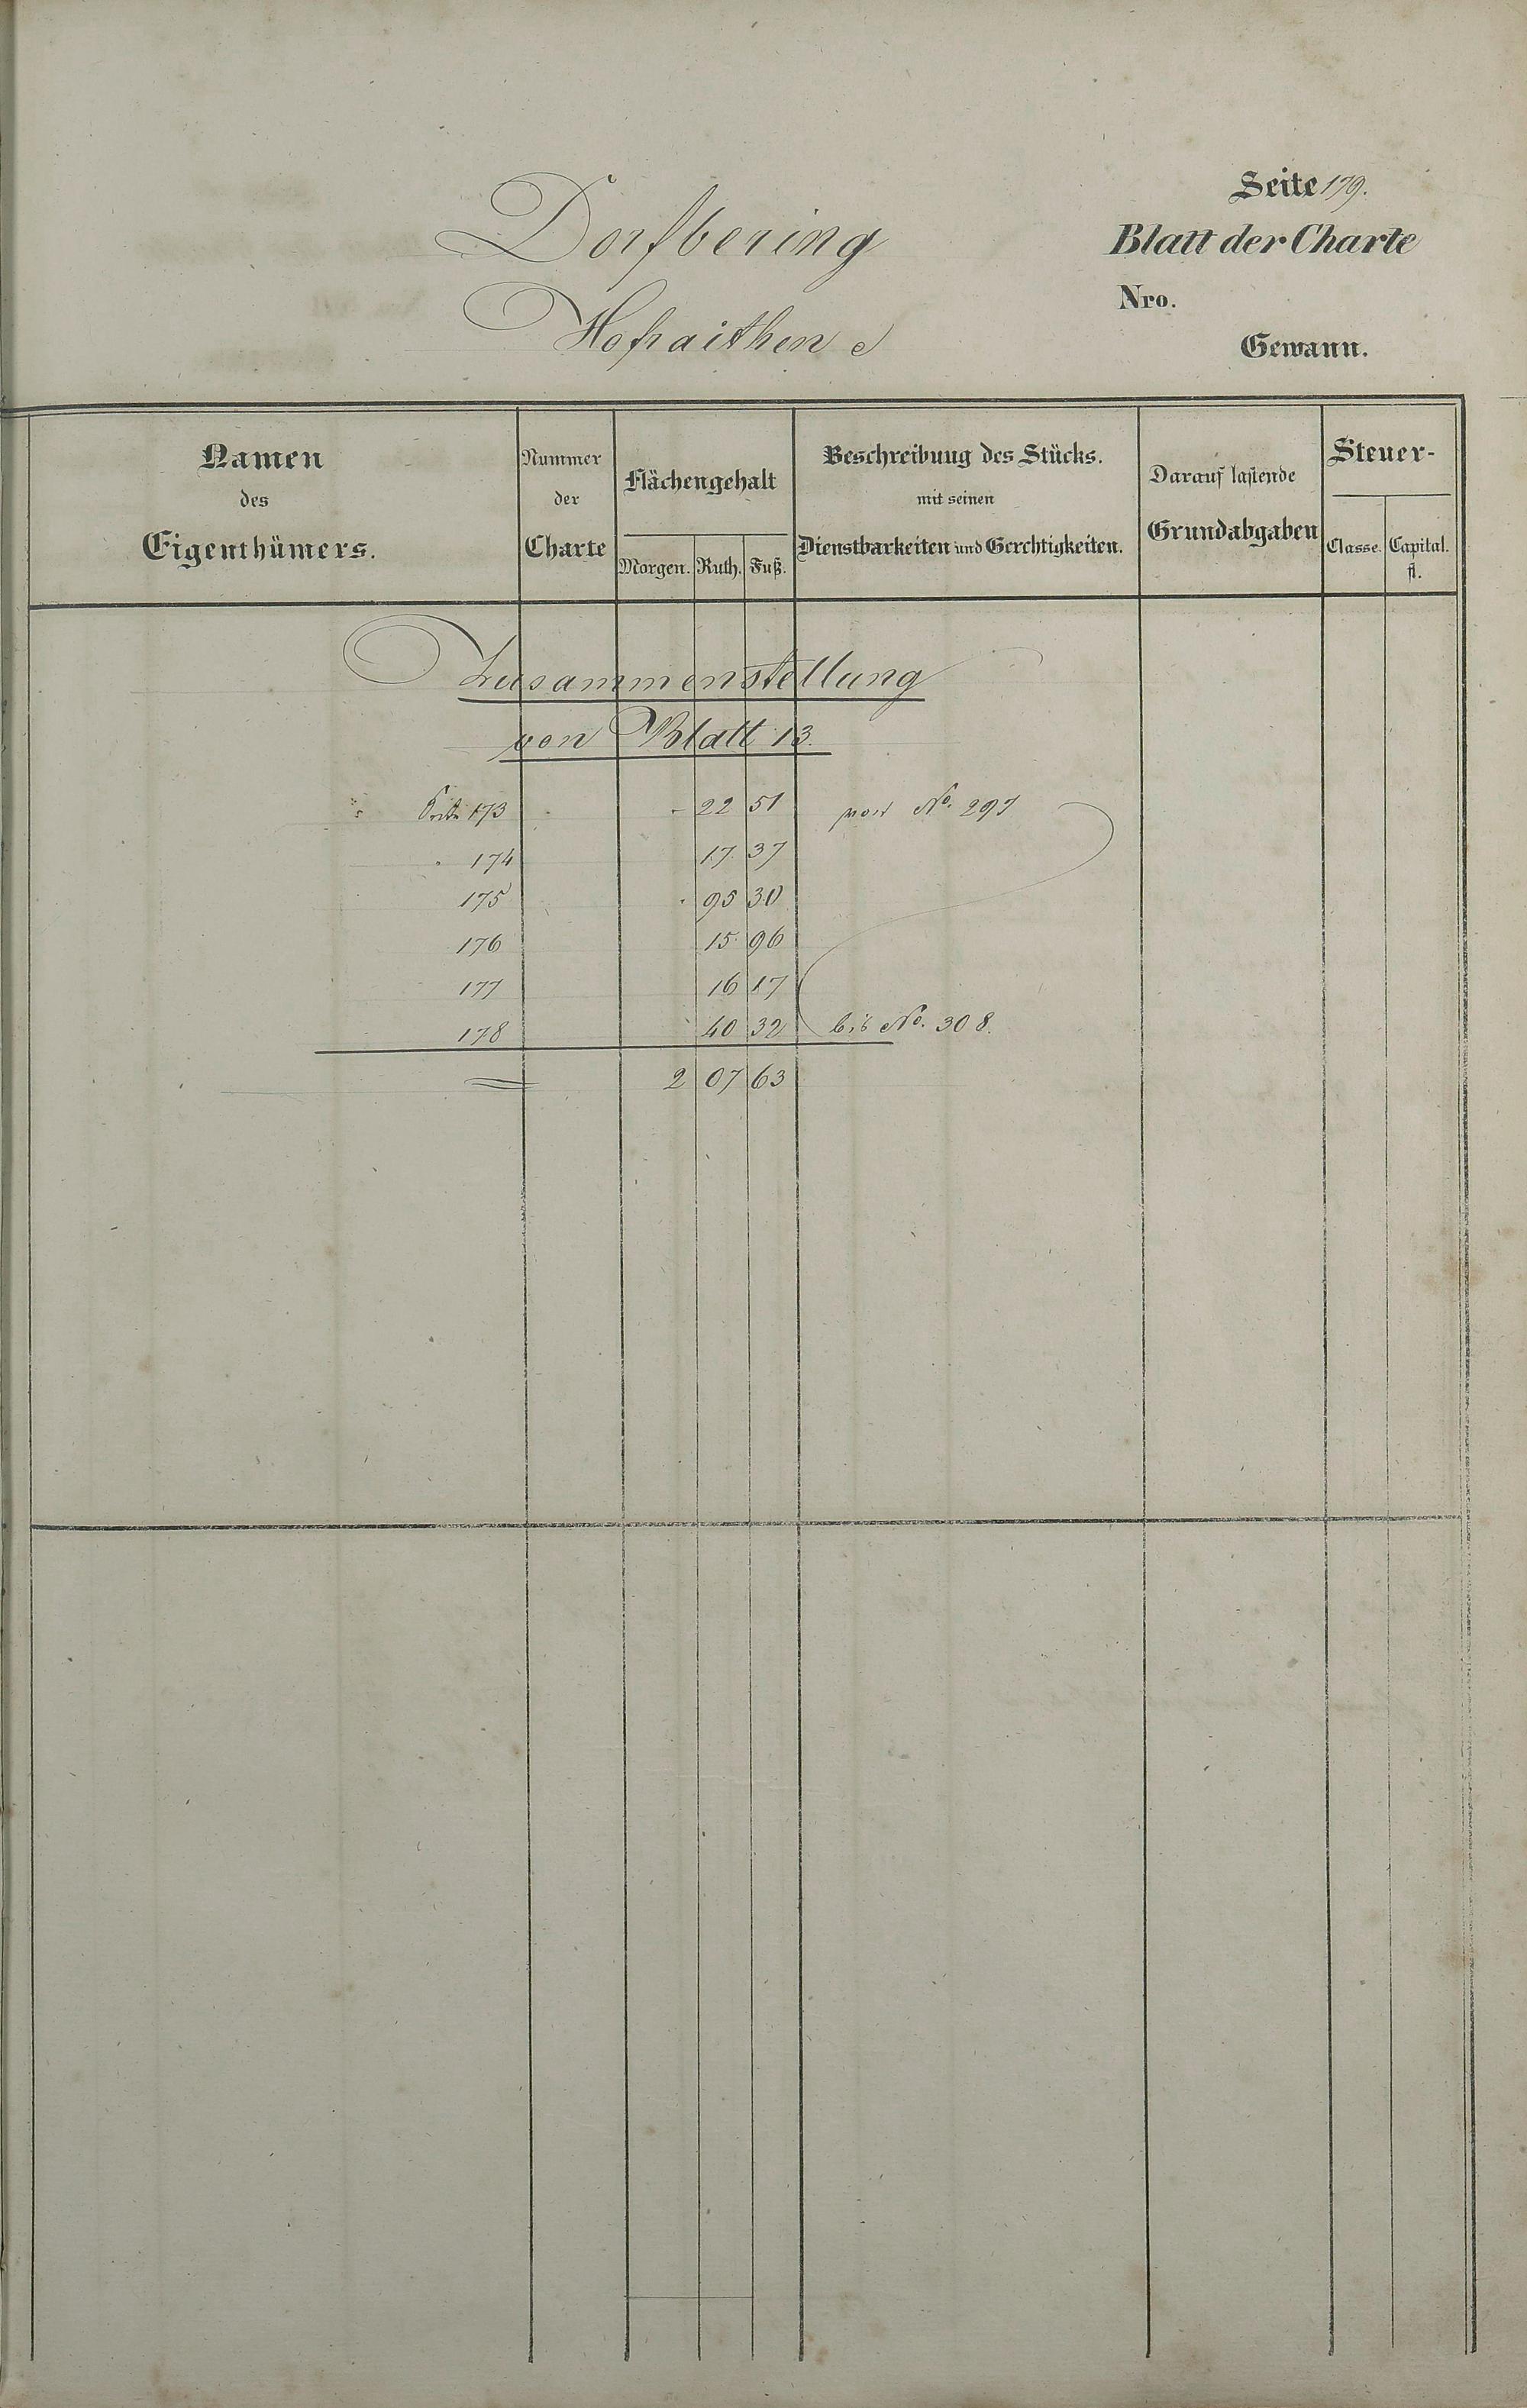 Seite 179.
Dorfbering
Blatt der Charte
Nro.
Hofraithen
Gewann.
Namen des Eigenthümers.
Nummer der Charte
Flächengehalt
Morgen. Ruth. Fuß.
Beschreibung des Stücks.
mit seinen
Dienstbarkeiten und Gerechtigkeiten.
Darauf lastende
Grundabgaben
Steuer-
Classe. Capital.
fl.
Zusammenstellung
von Blatt 13.
Seite 173 22 51 von No. 297
174 17 37
175 95 30
176 15 96
177 16 17
178 40 32 bis No. 308.
2 07 63